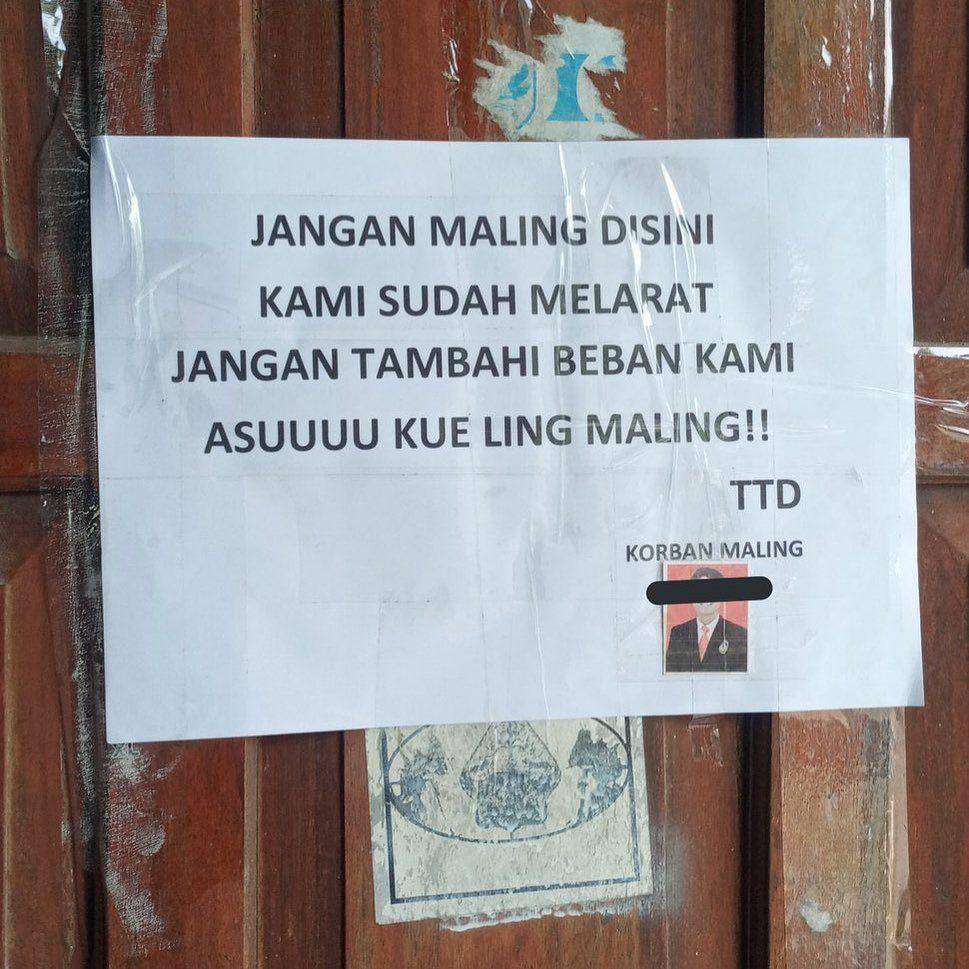 JANGAN MALING DISINI
KAMI SUDAH MELARAT
JANGAN TAMBAHI BEBAN KAMI
ASUUUU KUE LING MALING!!
TTD
KORBAN MALING